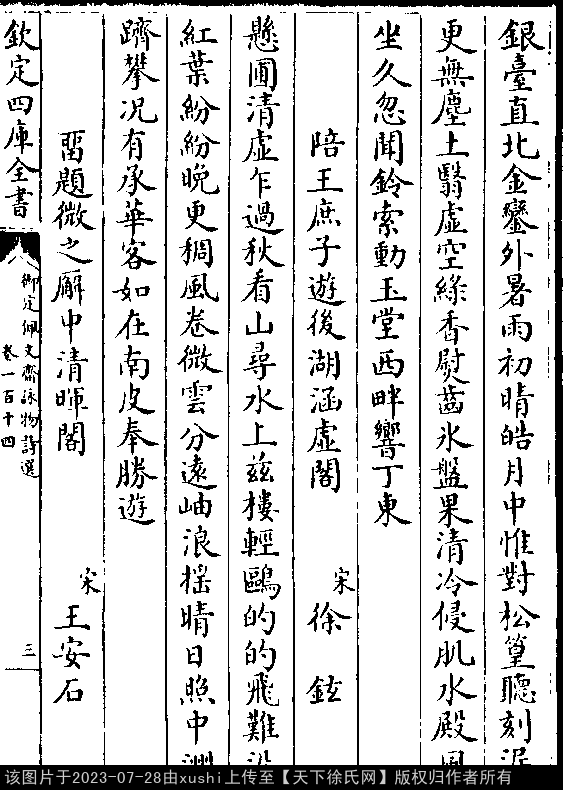 銀臺直北金鑾外暑雨初晴皓月中惟對松篁聽刻
更無塵土翳虛空綠香熨齒氷盤果清冷侵肌水殿風
坐久忽聞鈴索動玉堂西畔響丁東
陪王庶子遊後湖涵虛閣 宋 徐鉉
懸圃清虛乍過秋看山尋水上茲樓輕鷗的的飛難
紅葉紛紛晚更稠風卷微雲分遠岫浪揺晴日照中洲
躋攀况有承華客如在南皮奉勝遊
畱題微之廨中清暉閣 宋 王安石
欽定四庫全書
御定佩文齋詠物詩選
卷一百十四
三
该图片于2023-07-28由xushi上传至【天下徐氏网】版权归作者所有